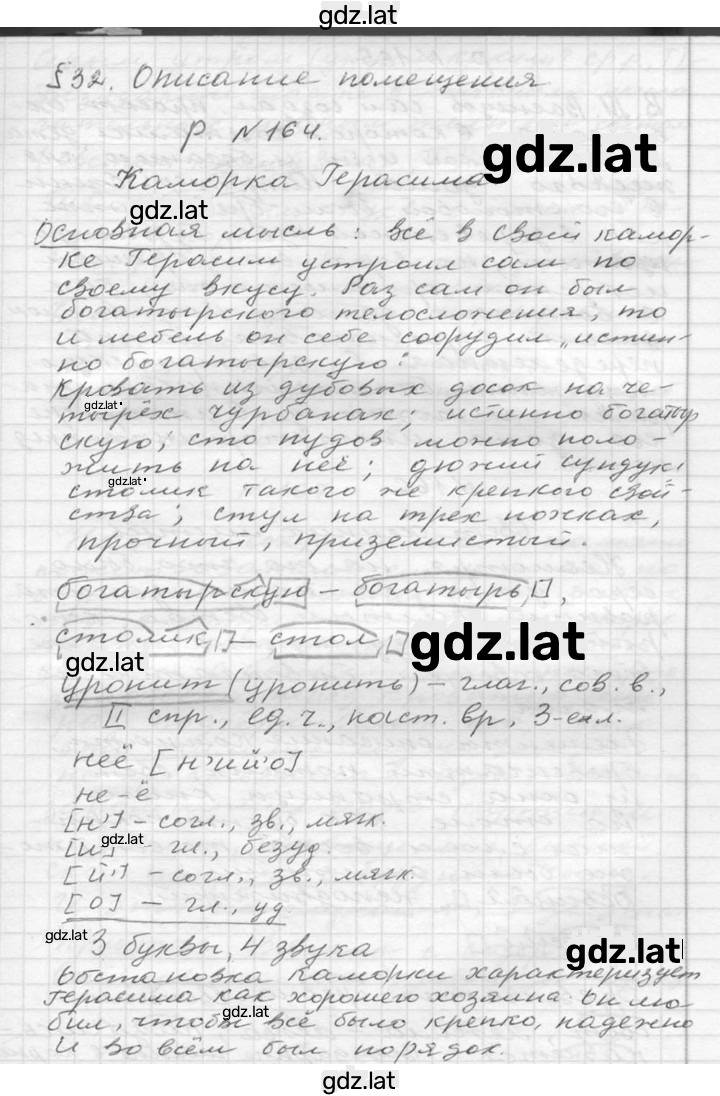 gdz.lat
§32. Описание помещения
р. №164.
gdz.lat
Каморка Герасима
gdz.lat
Основная мысль: всё в своей камор-
ке Герасим устроил сам по
своему вкусу. Раз сам он был
богатырского телосложения, то
и мебель он себе соорудил „истин-
но богатырскую:
кровать из дубовых досок на че-
gdz.lat
тырёх чурбанах; истинно богатыр
скую; сто пудов можно поло-
жить на неё; дюжий сундук;
gdz.lat
столик такого же крепкого свой-
ства; стул на трех ножках,
прочный, приземистый.
богатырскую – богатырь,
столик, – стол,
gdz.lat
gdz.lat
уронит (уронить) – глаг., сов. в.,
II спр., ед. ч., наст. вр, 3-е л.
неё [н'ий'о]
не-ё
[н'] – согл., зв., мягк.
gdz.lat
[и] – гл., безуд.
[й'] – согл., зв., мягк.
[о] – гл., уд
gdz.lat
3 буквы, 4 звука
gdz.lat
Обстановка каморки характеризует
Герасима как хорошего хозяина. Он лю-
gdz.lat
бил, чтобы всё было крепко, надежно
и во всём был порядок.
gdz.lat